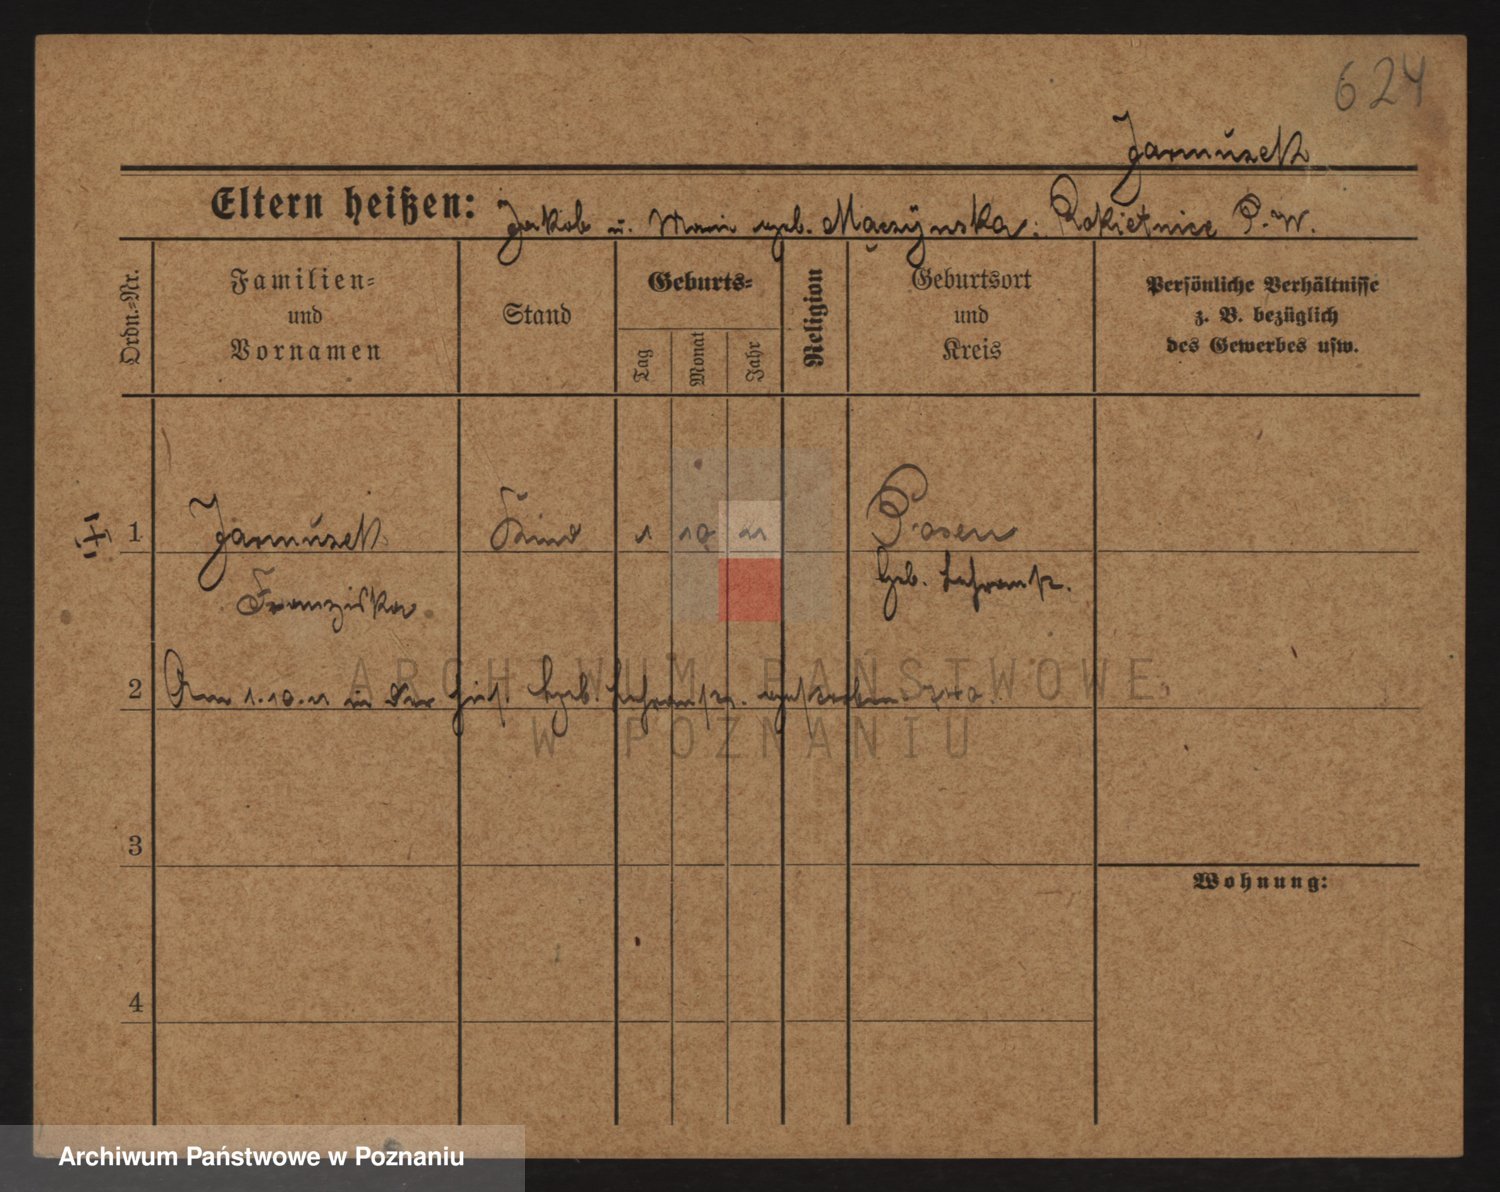 624
Jarmuzek
Eltern heißen: Jakob u. Marie geb. Maczijnska. Rokietnice P. W.
Ordn.=Nr.
Familien=
und
Vornamen
Stand
Geburts=
Tag
Monat
Jahr
Religion
Geburtsort
und
Kreis
Persönliche Verhältnisse
z. B. bezüglich
des Gewerbes usw.
1 Jarmuzek Kind 1 10 11 Posen
Franziska
2 Am 1.10.11 in der gestorben
3
4
Wohnung:
ARCHIWUM PAŃSTWOWE
W POZNANIU
Archiwum Państwowe w Poznaniu